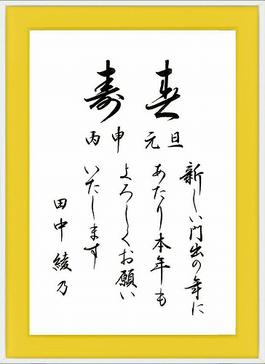 寿春
丙申 元旦
新しい門出の年に
あたり本年も
よろしくお願い
いたします
田中綾乃